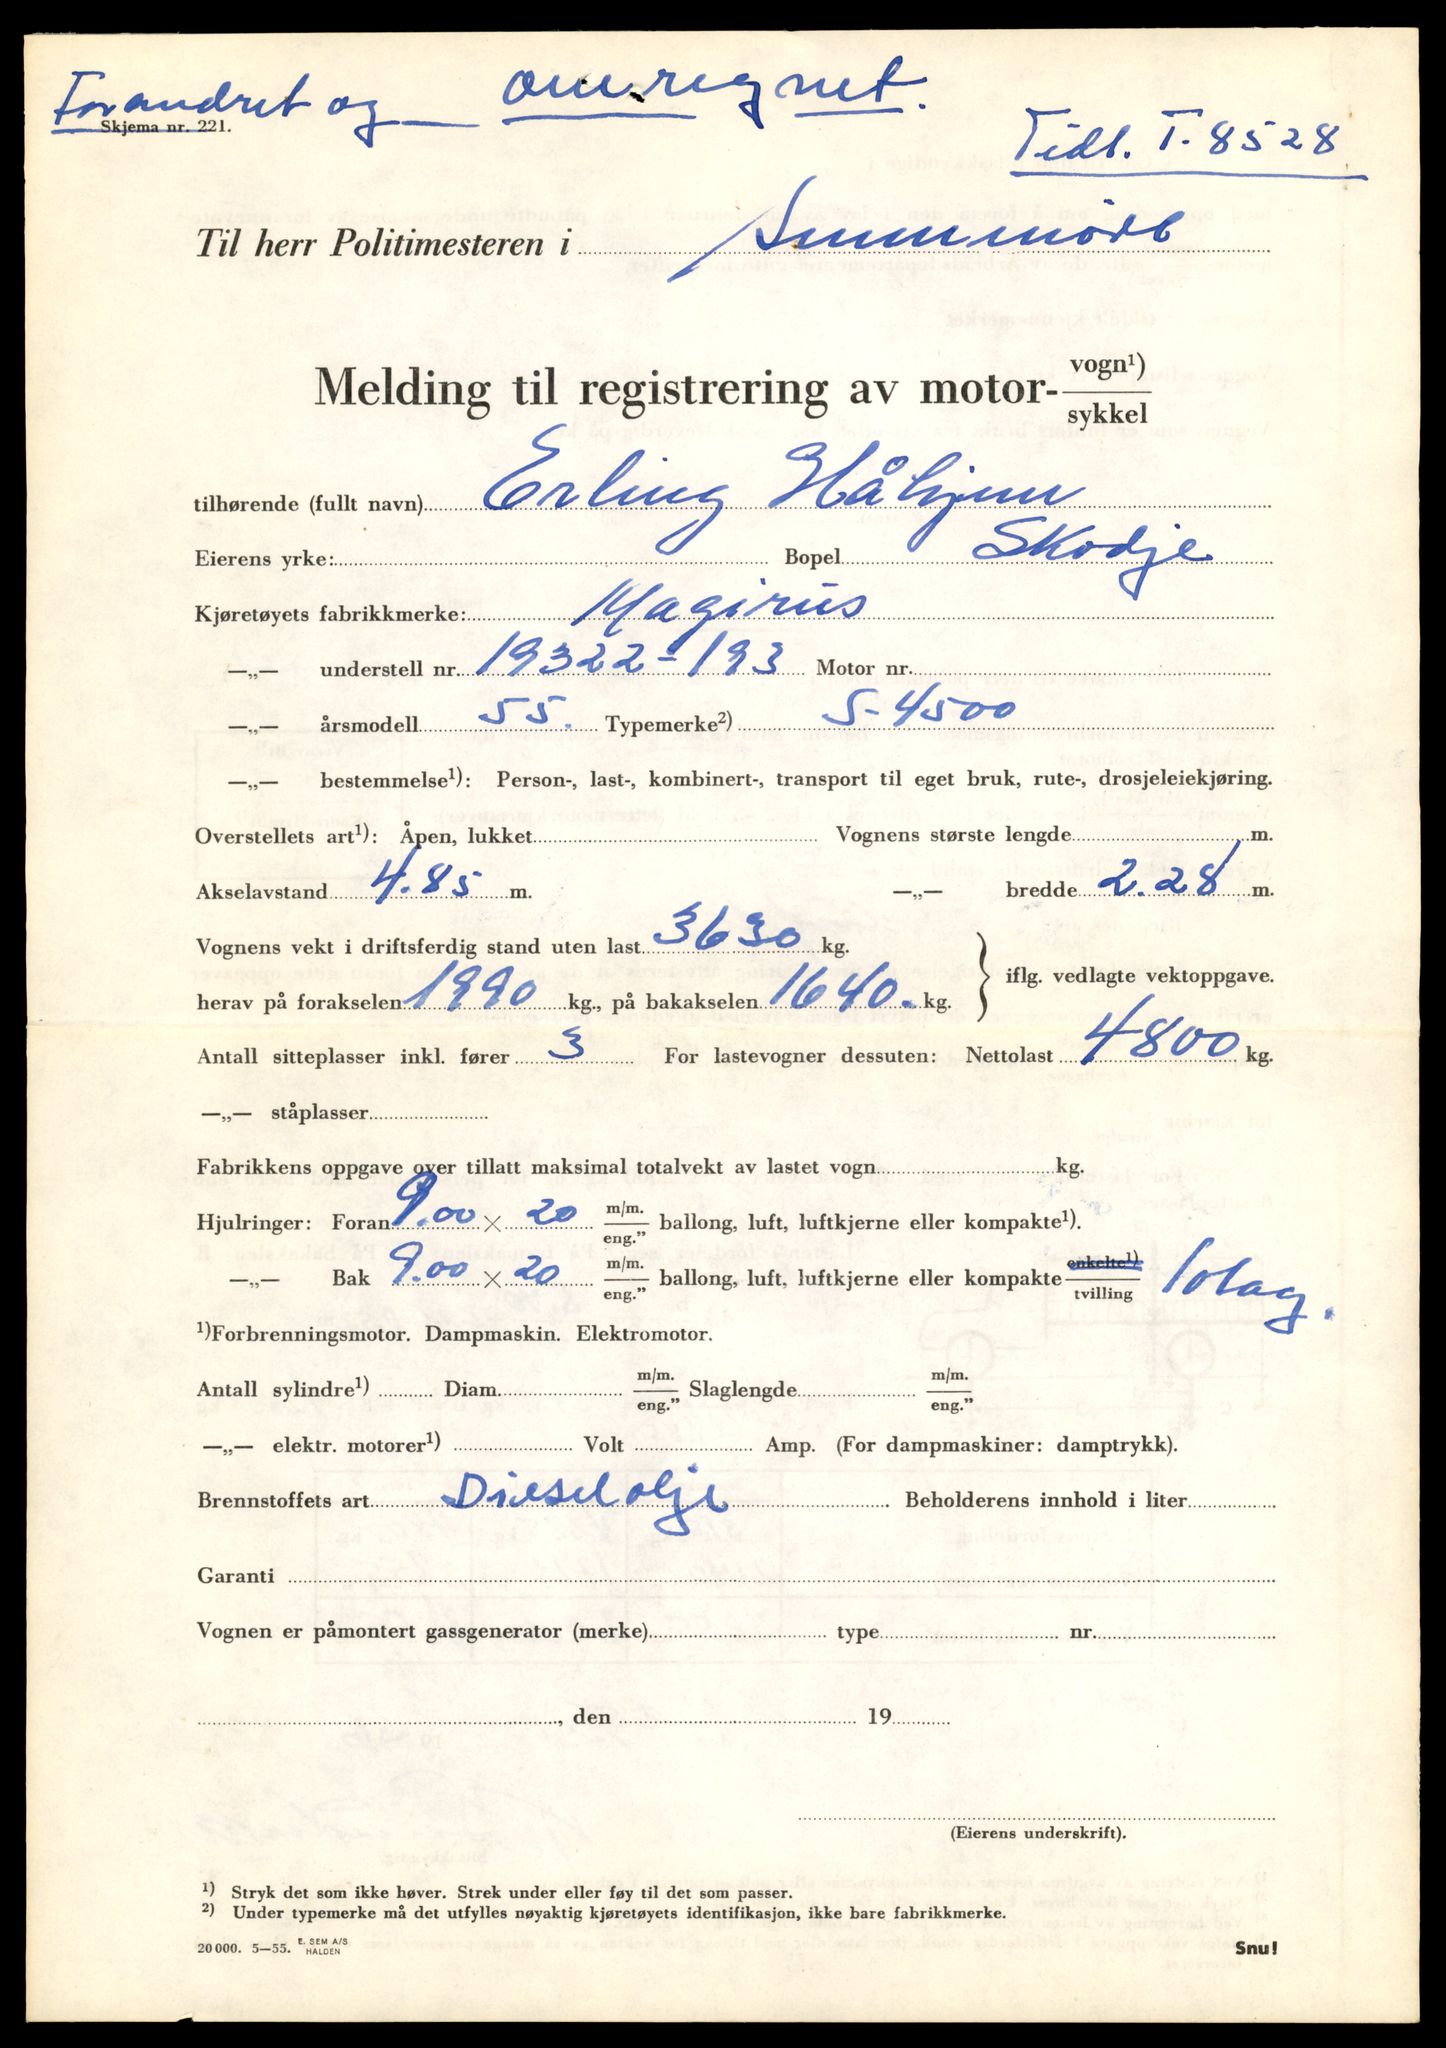 Forandret og omregnet.
Skjema nr. 221.
Tidl. T-8528
Til herr Politimesteren i Sunnmøre
Melding til registrering av motor- vogn¹) / sykkel
tilhørende (fullt navn) Erling Håhjem
Eierens yrke: Bopel Skodje
Kjøretøyets fabrikkmerke: Magirus
—„— understell nr. 19322-193 Motor nr.
—„— årsmodell 55. Typemerke²) S-4500
—„— bestemmelse¹): Person-, last-, kombinert-, transport til eget bruk, rute-, drosjeleiekjøring.
Overstellets art¹): Åpen, lukket Vognens største lengde m.
Akselavstand 4.85 m. —„— bredde 2.28 m.
Vognens vekt i driftsferdig stand uten last 3630 kg.
herav på forakselen 1990 kg., på bakakselen 1640. kg. } iflg. vedlagte vektoppgave.
Antall sitteplasser inkl. fører 3 For lastevogner dessuten: Nettolast 4800 kg.
—„— ståplasser
Fabrikkens oppgave over tillatt maksimal totalvekt av lastet vogn kg.
Hjulringer: Foran 9.00 × 20 m/m. / eng.” ballong, luft, luftkjerne eller kompakte¹).
—„— Bak 9.00 × 20 m/m. / eng.” ballong, luft, luftkjerne eller kompakte enkelte¹) / tvilling 10lag.
¹)Forbrenningsmotor. Dampmaskin. Elektromotor.
Antall sylindre¹) Diam. m/m. / eng.” Slaglengde m/m. / eng.”
—„— elektr. motorer¹) Volt Amp. (For dampmaskiner: damptrykk).
Brennstoffets art Dieselolje Beholderens innhold i liter
Garanti
Vognen er påmontert gassgenerator (merke) type nr.
, den 19
(Eierens underskrift).
¹) Stryk det som ikke høver. Strek under eller føy til det som passer.
²) Under typemerke må det utfylles nøyaktig kjøretøyets identifikasjon, ikke bare fabrikkmerke.
20 000. 5—55. E. SEM A/S HALDEN
Snu!